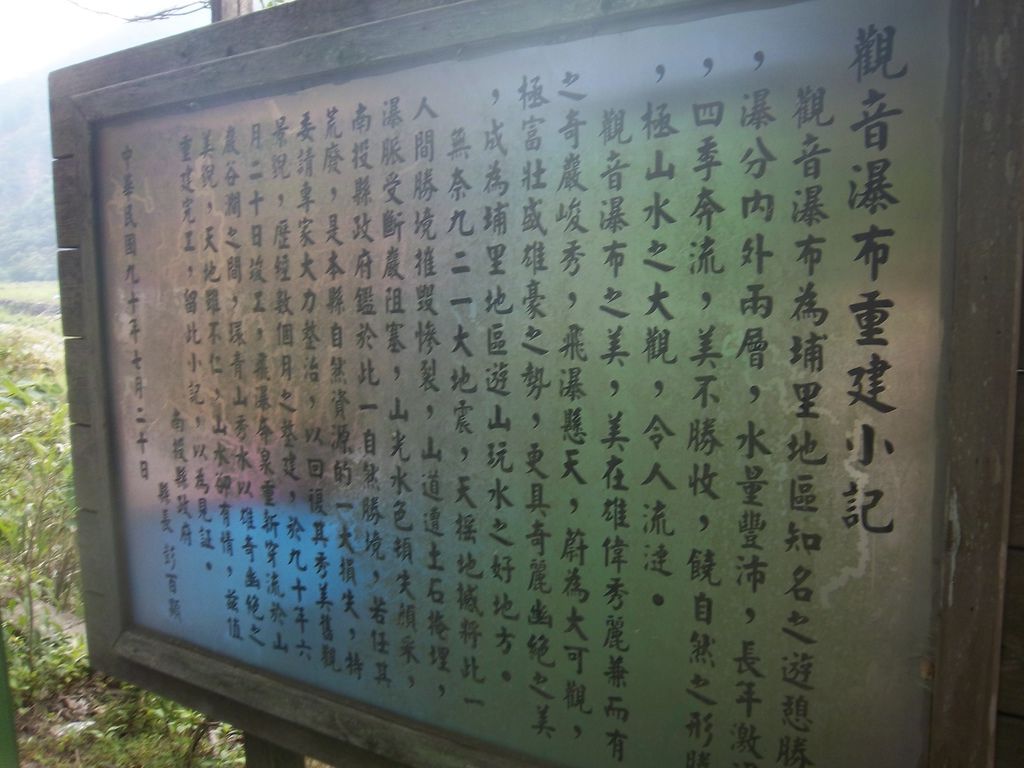 觀音瀑布重建小記
觀音瀑布為埔里地區知名之遊憩勝
，瀑分內外兩層，水量豐沛，長年激
，四季奔流，美不勝收，饒自然之形勝
，極山水之大觀，令人流連。
觀音瀑布之美，美在雄偉秀麗兼而有
之奇巖峻秀，飛瀑懸天，蔚為大可觀，
極富壯盛雄豪之勢，更具奇麗幽絕之美
，成為埔里地區遊山玩水之好地方。
無奈九二一大地震，天搖地撼將此一
人間勝境摧毀慘裂，山道遭土石掩埋，
瀑脈受斷巖阻塞，山光水色頓失顏采，
南投縣政府鑑於此一自然勝境，若任其
荒廢，是本縣自然資源的一大損失，特
委請專家大力整治，以回復其秀美舊觀
景貌，歷經數個月之整建，於九十年六
月二十日竣工，飛瀑奔泉重新穿流於山
巖谷澗之間，青山秀水以雄奇幽絕之
美貌，天地雖不仁，山水卻有情，茲值
重建完工，留此小記，以為見証。
南投縣政府
縣長 彭百顯
中華民國九十年七月二十日